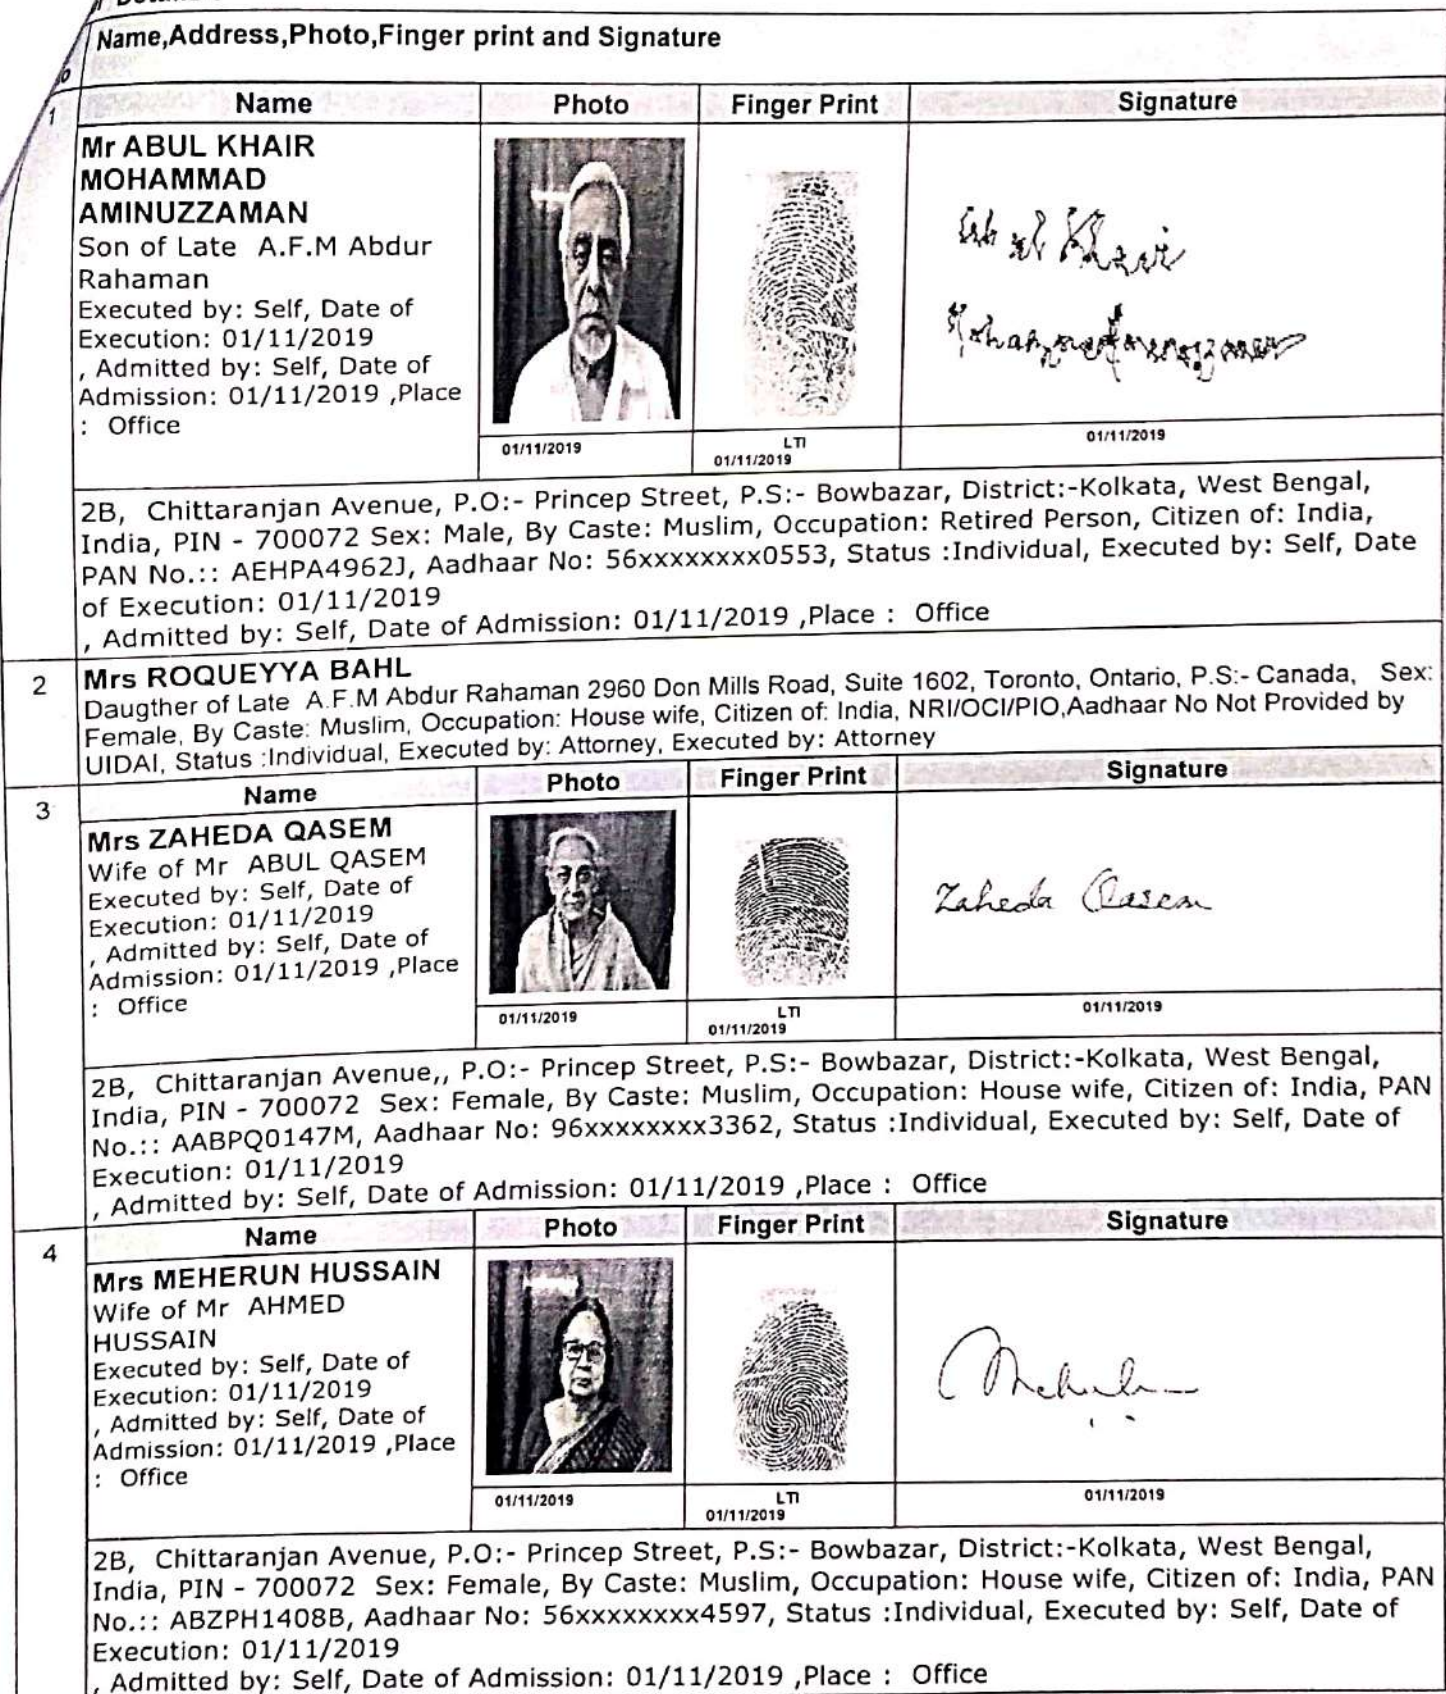 Name,Address,Photo,Finger print and Signature
1
Name Photo Finger Print Signature
Mr ABUL KHAIR
MOHAMMAD
AMINUZZAMAN
Son of Late A.F.M Abdur
Rahaman
Executed by: Self, Date of
Execution: 01/11/2019
, Admitted by: Self, Date of
Admission: 01/11/2019 ,Place
: Office
Abul Khair
01/11/2019
LTI
01/11/2019
01/11/2019
2B, Chittaranjan Avenue, P.O:- Princep Street, P.S:- Bowbazar, District:-Kolkata, West Bengal,
India, PIN - 700072 Sex: Male, By Caste: Muslim, Occupation: Retired Person, Citizen of: India,
PAN No.:: AEHPA4962J, Aadhaar No: 56xxxxxxxx0553, Status :Individual, Executed by: Self, Date
of Execution: 01/11/2019
, Admitted by: Self, Date of Admission: 01/11/2019 ,Place : Office
2
Mrs ROQUEYYA BAHL
Daugther of Late A.F.M Abdur Rahaman 2960 Don Mills Road, Suite 1602, Toronto, Ontario, P.S:- Canada, Sex:
Female, By Caste: Muslim, Occupation: House wife, Citizen of: India, NRI/OCI/PIO,Aadhaar No Not Provided by
UIDAI, Status :Individual, Executed by: Attorney, Executed by: Attorney
3
Name Photo Finger Print Signature
Mrs ZAHEDA QASEM
Wife of Mr ABUL QASEM
Executed by: Self, Date of
Execution: 01/11/2019
, Admitted by: Self, Date of
Admission: 01/11/2019 ,Place
: Office
Zaheda Qasem
01/11/2019
LTI
01/11/2019
01/11/2019
2B, Chittaranjan Avenue,, P.O:- Princep Street, P.S:- Bowbazar, District:-Kolkata, West Bengal,
India, PIN - 700072 Sex: Female, By Caste: Muslim, Occupation: House wife, Citizen of: India, PAN
No.:: AABPQ0147M, Aadhaar No: 96xxxxxxxx3362, Status :Individual, Executed by: Self, Date of
Execution: 01/11/2019
, Admitted by: Self, Date of Admission: 01/11/2019 ,Place : Office
4
Name Photo Finger Print Signature
Mrs MEHERUN HUSSAIN
Wife of Mr AHMED
HUSSAIN
Executed by: Self, Date of
Execution: 01/11/2019
, Admitted by: Self, Date of
Admission: 01/11/2019 ,Place
: Office
01/11/2019
LTI
01/11/2019
01/11/2019
2B, Chittaranjan Avenue, P.O:- Princep Street, P.S:- Bowbazar, District:-Kolkata, West Bengal,
India, PIN - 700072 Sex: Female, By Caste: Muslim, Occupation: House wife, Citizen of: India, PAN
No.:: ABZPH1408B, Aadhaar No: 56xxxxxxxx4597, Status :Individual, Executed by: Self, Date of
Execution: 01/11/2019
, Admitted by: Self, Date of Admission: 01/11/2019 ,Place : Office